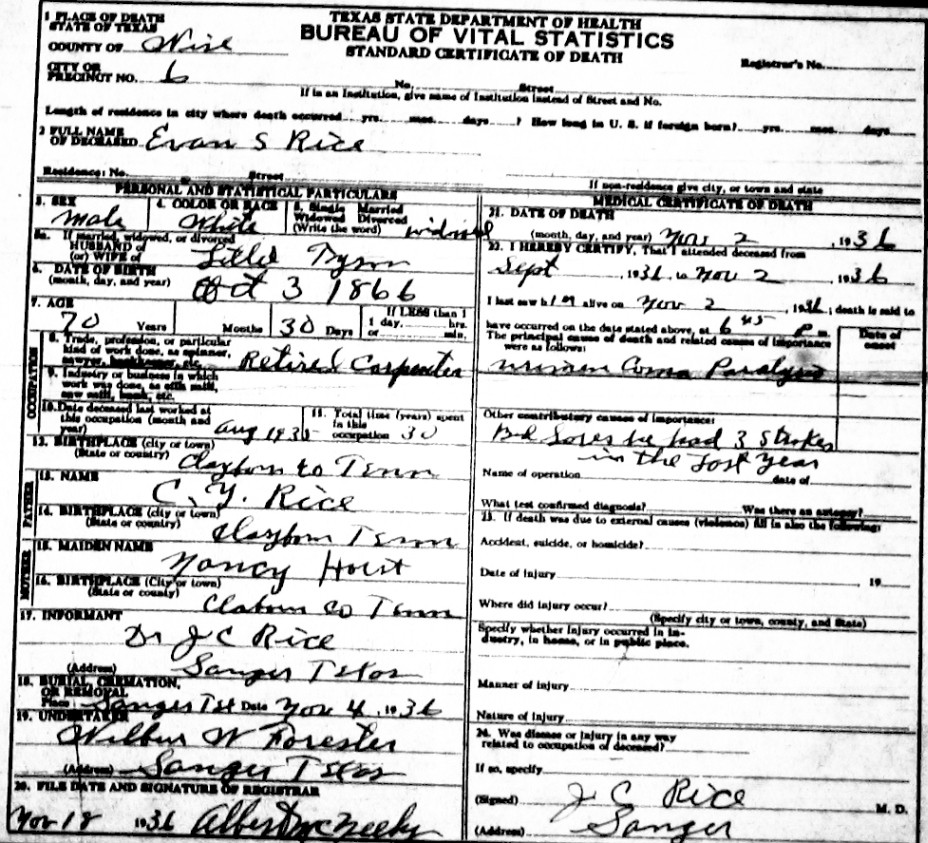 TEXAS STATE DEPARTMENT OF HEALTH
BUREAU OF VITAL STATISTICS
STANDARD CERTIFICATE OF DEATH
1 PLACE OF DEATH
STATE OF TEXAS
COUNTY OF Wise
CITY OR
PRECINCT NO. 6
Registrar's No.
No. Street
If in an Institution, give name of Institution instead of Street and No.
Length of residence in city where death occurred yrs. mos. days ? How long in U. S. if foreign born? yrs. mos. days
2 FULL NAME
OF DECEASED Evan S Rice
Residence: No. Street
If non-residence give city, or town and state
PERSONAL AND STATISTICAL PARTICULARS
3. SEX
Male
4. COLOR OR RACE
White
5. Single Married
Widowed Divorced
(Write the word) widowed
5a. If married, widowed, or divorced
HUSBAND of
(or) WIFE of Tyson
6. DATE OF BIRTH
(month, day, and year) Oct 3 1866
7. AGE
70 Years Months 30 Days
If LESS than 1
1 day, hrs.
or min.
OCCUPATION
8. Trade, profession, or particular
kind of work done, as spinner,
sawyer, bookkeeper, etc. Retired Carpenter
9. Industry or business in which
work was done, as silk mill,
saw mill, bank, etc.
10. Date deceased last worked at
this occupation (month and
year) Aug
11. Total time (years) spent
in this
occupation 30
12. BIRTHPLACE (city or town)
(State or country) Clayborn Co Tenn
FATHER
13. NAME
C. Y. Rice
14. BIRTHPLACE (city or town)
(State or country) Clayborn Tenn
MOTHER
15. MAIDEN NAME
Nancy
16. BIRTHPLACE (City or town)
(State or county) Claborn Co Tenn
17. INFORMANT
Dr J C Rice
(Address) Sanger Texas
18. BURIAL, CREMATION,
OR REMOVAL
Place Sanger Date Nov 4, 1936
19. UNDERTAKER
Wilbur W Forester
(Address) Sanger Texas
20. FILE DATE AND SIGNATURE OF REGISTRAR
Nov 18 1936 Albert McNeely
MEDICAL CERTIFICATE OF DEATH
21. DATE OF DEATH
(month, day, and year) Nov 2, 1936
22. I HEREBY CERTIFY, That I attended deceased from
Sept, 1936 to Nov 2, 1936
I last saw him alive on Nov 2, 1936; death is said to
have occurred on the date stated above, at 6 45 P m.
The principal cause of death and related causes of importance
were as follows:
Date of
onset
Coma Paralysis
Other contributory causes of importance:
Bed Sores he had 3 Strokes
in the Last Year
Name of operation date of
What test confirmed diagnosis? Was there an autopsy?
23. If death was due to external causes (violence) fill in also the following:
Accident, suicide, or homicide?
Date of injury, 19
Where did injury occur?
(Specify city or town, county, and State)
Specify whether injury occurred in in-
dustry, in home, or in public place.
Manner of injury
Nature of injury
24. Was disease or injury in any way
related to occupation of deceased?
If so, specify
(Signed) J C Rice M. D.
(Address) Sanger